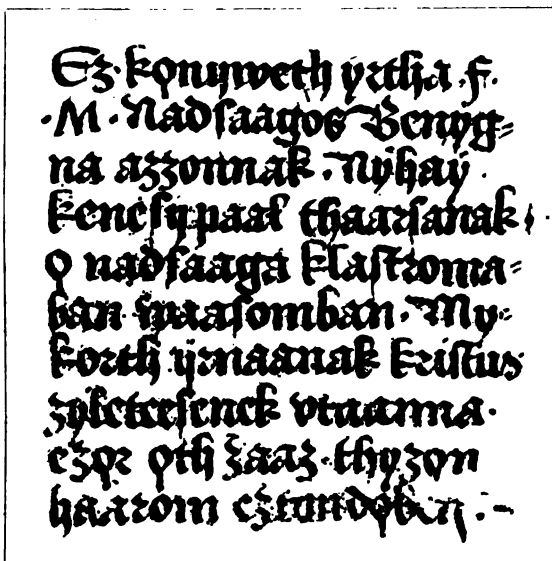 Ez kǫnyweth yrtha .f.
.M. Nadſaagos Benyg⸗
na azzonnak. Nyhay
keneſy paal thaarſanak,
ǫ nadſaaga klaſtroma⸗
ban vaaſomban. My⸗
korth yrnaanak kriſtus
zyleteeſenek vtanna.
ezǫr ǫth zaaz. thyzǫn
haarom eztendǫben. :-